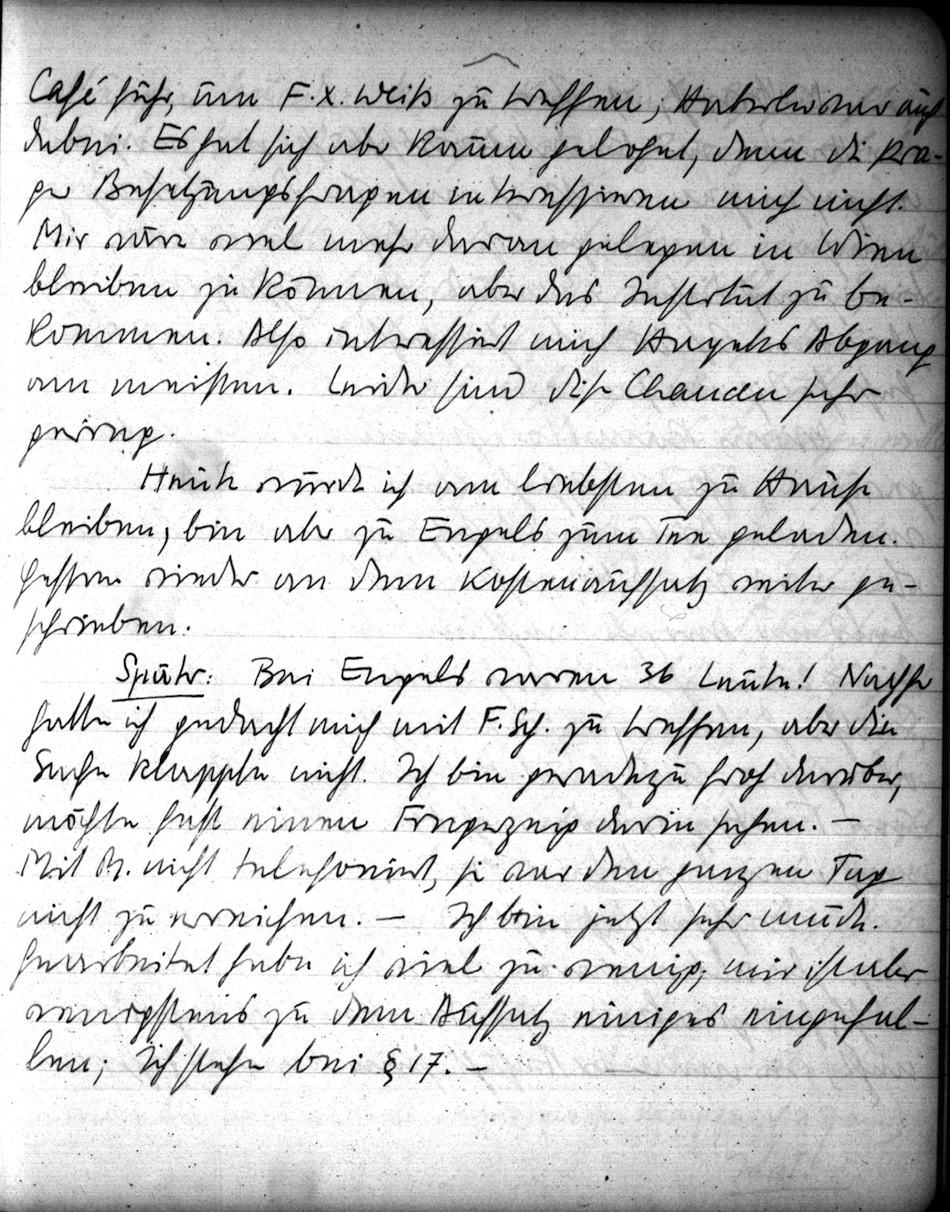 Café fuhr, um F. X. Weiß zu treffen; Haberler war auch
dabei. Es hat sich aber kaum gelohnt, denn die Pra-
ger Besetzungsfragen interessieren mich nicht.
Mir wäre viel mehr daran gelegen in Wien
bleiben zu können, aber das Institut zu be-
kommen. Also interessiert mich Hayeks Abgang
am meisten. Leider sind diese Chancen sehr
gering.
Heute würde ich am liebsten zu Hause
bleiben, bin aber zu Engels zum Tee geladen.
Gestern wieder an dem Kostenaufsatz weiter ge-
schrieben.
Später: Bei Engels waren 36 Leute! Nachher
hatte ich gedacht mich mit F. Sch. zu treffen, aber die
Sache klappte nicht. Ich bin geradezu froh darüber,
möchte fast einen Fingerzeig darin sehen. —
Mit M. nicht telefoniert, sie war den ganzen Tag
nicht zu erreichen. — Ich bin jetzt sehr müde.
Gearbeitet habe ich viel zu wenig; mir ist aber
wenigstens zu dem Aufsatz einiges eingefal-
len; Ich stehe bei § 17. —